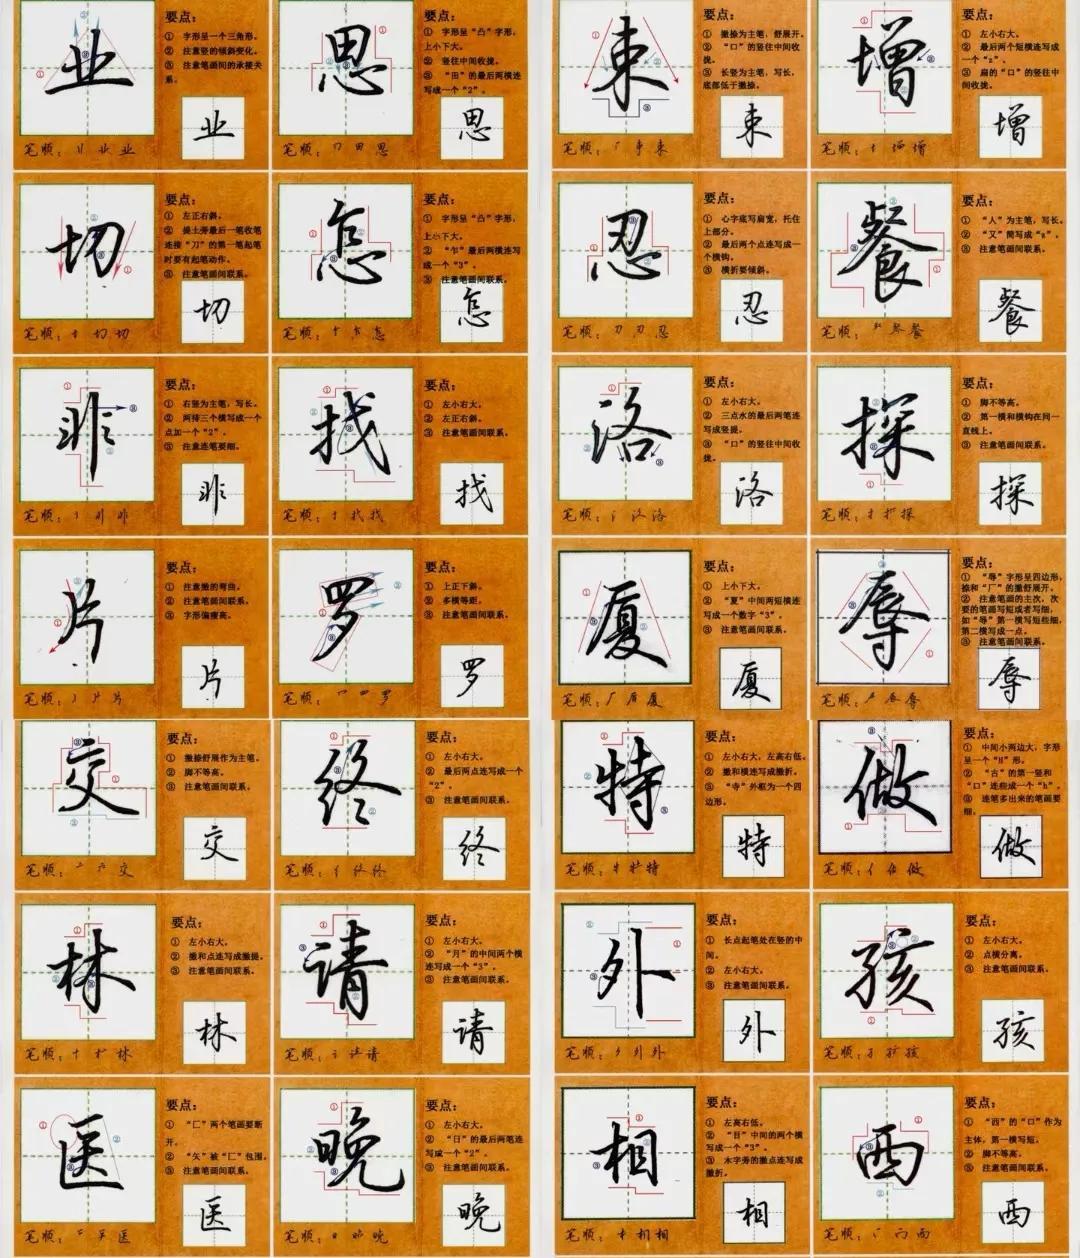 业
要点：
① 字形呈一个三角形。
② 注意竖的倾斜变化。
③ 注意笔画间的承接关
系。
业
笔顺：
业
思
要点：
① 字形呈“凸”字形，
上小下大。
② 竖往中间收拢。
③ “田”的最后两横连
写成一个“2”。
思
笔顺：
田 思
束
要点：
① 撇捺为主笔，舒展开。
② “口”的竖往中间收
拢。
③ 长竖为主笔，写长，
底部低于撇捺。
束
笔顺：
束
增
要点：
① 左小右大。
② 最后两个短横连写成
一个“z”。
③ 扁的“口”的竖往中
间收拢。
增
笔顺：
增
切
要点：
① 左正右斜。
② 提土旁最后一笔收笔
连接“刀”的第一笔起笔
时要有起笔动作。
③ 注意笔画间联系。
切
笔顺：
切 切
怎
要点：
① 字形呈“凸”字形，
上小下大。
② “乍”最后两横连写
成一个“3”。
③ 注意笔画间联系。
怎
笔顺：
乍 怎
忍
要点：
① 心字底写扁宽，托住
上部分。
② 最后两个点连写成一
个横钩。
③ 横折要倾斜。
忍
笔顺：
刀 刃 忍
餐
要点：
① “人”为主笔，写长。
② “又”简写成“s”。
③ 注意笔画间联系。
餐
笔顺：
餐
非
要点：
① 右竖为主笔，写长。
② 两待三个横写成一个
点加一个“2”。
③ 注意连笔要细。
非
笔顺：
非
找
要点：
① 左小右大。
② 左正右斜。
③ 注意笔画间联系。
找
笔顺：
扌 找 找
洛
要点：
① 左小右大。
② 三点水的最后两笔连
写成竖提。
③ “口”的竖往中间收
拢。
洛
笔顺：
洛
探
要点：
① 脚不等高。
② 第一横和横钩在同一
直线上。
③ 注意笔画间联系。
探
笔顺：
扌 探
片
要点：
① 注意撇的弯曲。
② 注意笔画间联系。
③ 字形偏瘦高。
片
笔顺：
片 片
罗
要点：
① 上正下斜。
② 多横等距。
③ 注意笔画间联系。
罗
笔顺：
罒 罗
厦
要点：
① 上小下大。
② “夏”中间两短横连
写成一个数字“3”。
③ 注意笔画间联系。
厦
笔顺：
厂 厦
辱
要点：
① “辱”字形呈四边形，
捺和“厂”的撇舒展开。
② 注意笔画的主次，次
要的笔画写短或者写细。
如“辱”第一横写短些细，
第二横写成一点。
③ 注意笔画间联系。
辱
笔顺：
辰 辱
交
要点：
① 撇捺舒展作为主笔。
② 脚不等高。
③ 注意笔画间联系。
交
笔顺：
亠 六 交
终
要点：
① 左小右大。
② 最后两点连写成一个
“2”。
③ 注意笔画间联系。
终
笔顺：
终 终
特
要点：
① 左小右大，左高右低。
② 撇和横连写成撇折。
③ “寺”外框为一个四
边形。
特
笔顺：
牛 特
做
要点：
① 中间小两边大，字形
呈一个“H”形。
② “古”的第一竖和
“口”连些成一个“h”。
③ 连笔多出来的笔画要
细。
做
笔顺：
亻 估 做
林
要点：
① 左小右大。
② 撇和点连写成撇提。
③ 注意笔画间联系。
林
笔顺：
十 才 林
请
要点：
① 左小右大。
② “月”的中间两个横
连写成一个“3”。
③ 注意笔画间联系。
请
笔顺：
讠 请
外
要点：
① 长点起笔处在竖的中
间。
② 左小右大。
③ 注意笔画间联系。
外
笔顺：
夕 外 外
孩
要点：
① 左小右大。
② 点横分离。
③ 注意笔画间联系。
孩
笔顺：
孑 孩
医
要点：
① “匚”两个笔画要断
开。
② “矢”被“匚”包围。
③ 注意笔画间联系。
医
笔顺：
医
晚
要点：
① 左小右大。
② “日”的最后两笔连
写成一个“2”。
③ 注意笔画间联系。
晚
笔顺：
日 晚
相
要点：
① 左高右低。
② “目”中间的两个横
写成一个“3”。
③ 木字旁的撇点连写成
撇折。
相
笔顺：
相 相
西
要点：
① “西”的“口”作为
主体，第一横写短。
② 脚不等高。
③ 注意笔画间联系。
西
笔顺：
西